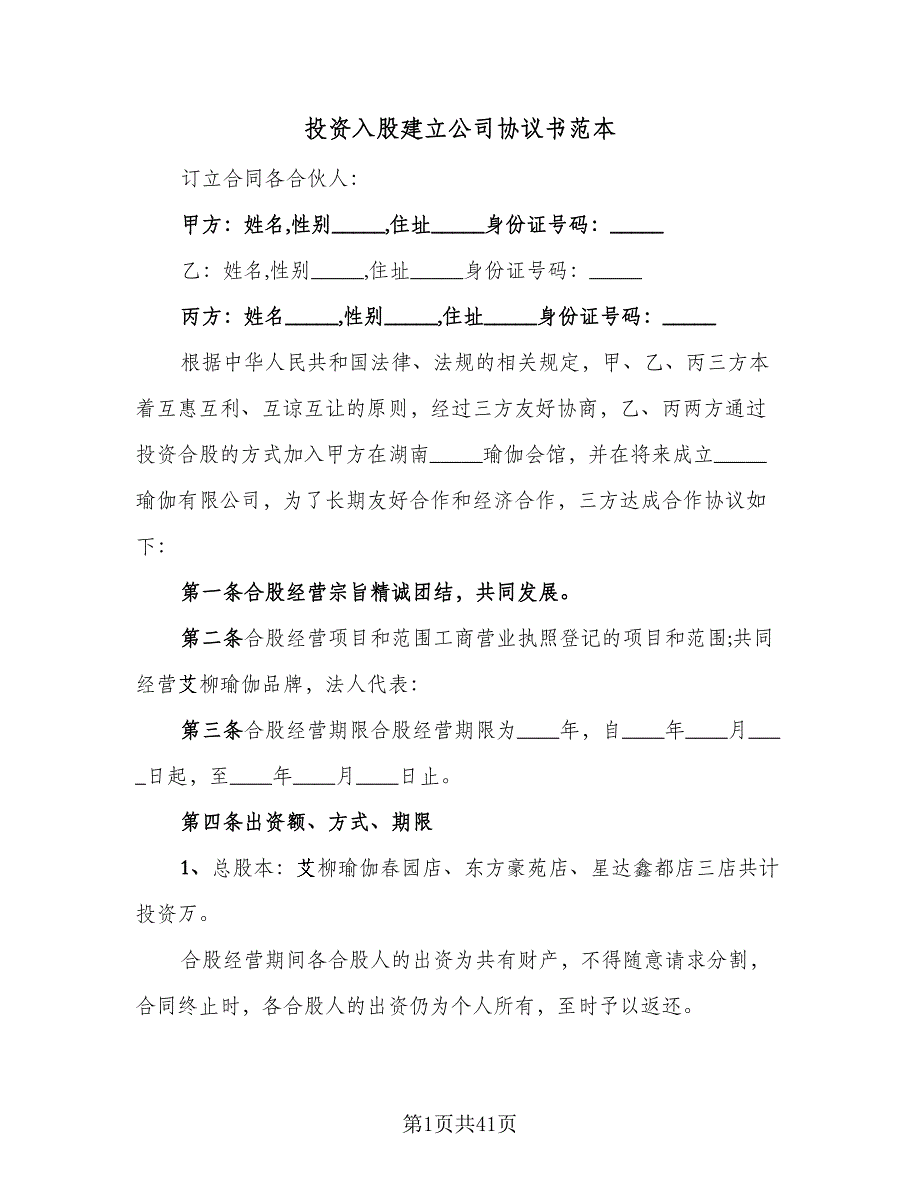 投资入股建立公司协议书范本
订立合同各合伙人：
甲方：姓名,性别_____,住址_____身份证号码：_____
乙：姓名,性别_____,住址_____身份证号码：_____
丙方：姓名_____,性别_____,住址_____身份证号码：_____
根据中华人民共和国法律、法规的相关规定，甲、乙、丙三方本
着互惠互利、互谅互让的原则，经过三方友好协商，乙、丙两方通过
投资合股的方式加入甲方在湖南_____瑜伽会馆，并在将来成立_____
瑜伽有限公司，为了长期友好合作和经济合作，三方达成合作协议如
下：
第一条合股经营宗旨精诚团结，共同发展。
第二条合股经营项目和范围工商营业执照登记的项目和范围;共同
经营艾柳瑜伽品牌，法人代表：
第三条合股经营期限合股经营期限为____年，自____年____月___
_日起，至____年____月____日止。
第四条出资额、方式、期限
1、总股本：艾柳瑜伽春园店、东方豪苑店、星达鑫都店三店共计
投资万。
合股经营期间各合股人的出资为共有财产，不得随意请求分割，
合同终止时，各合股人的出资仍为个人所有，至时予以返还。
第1页共41页